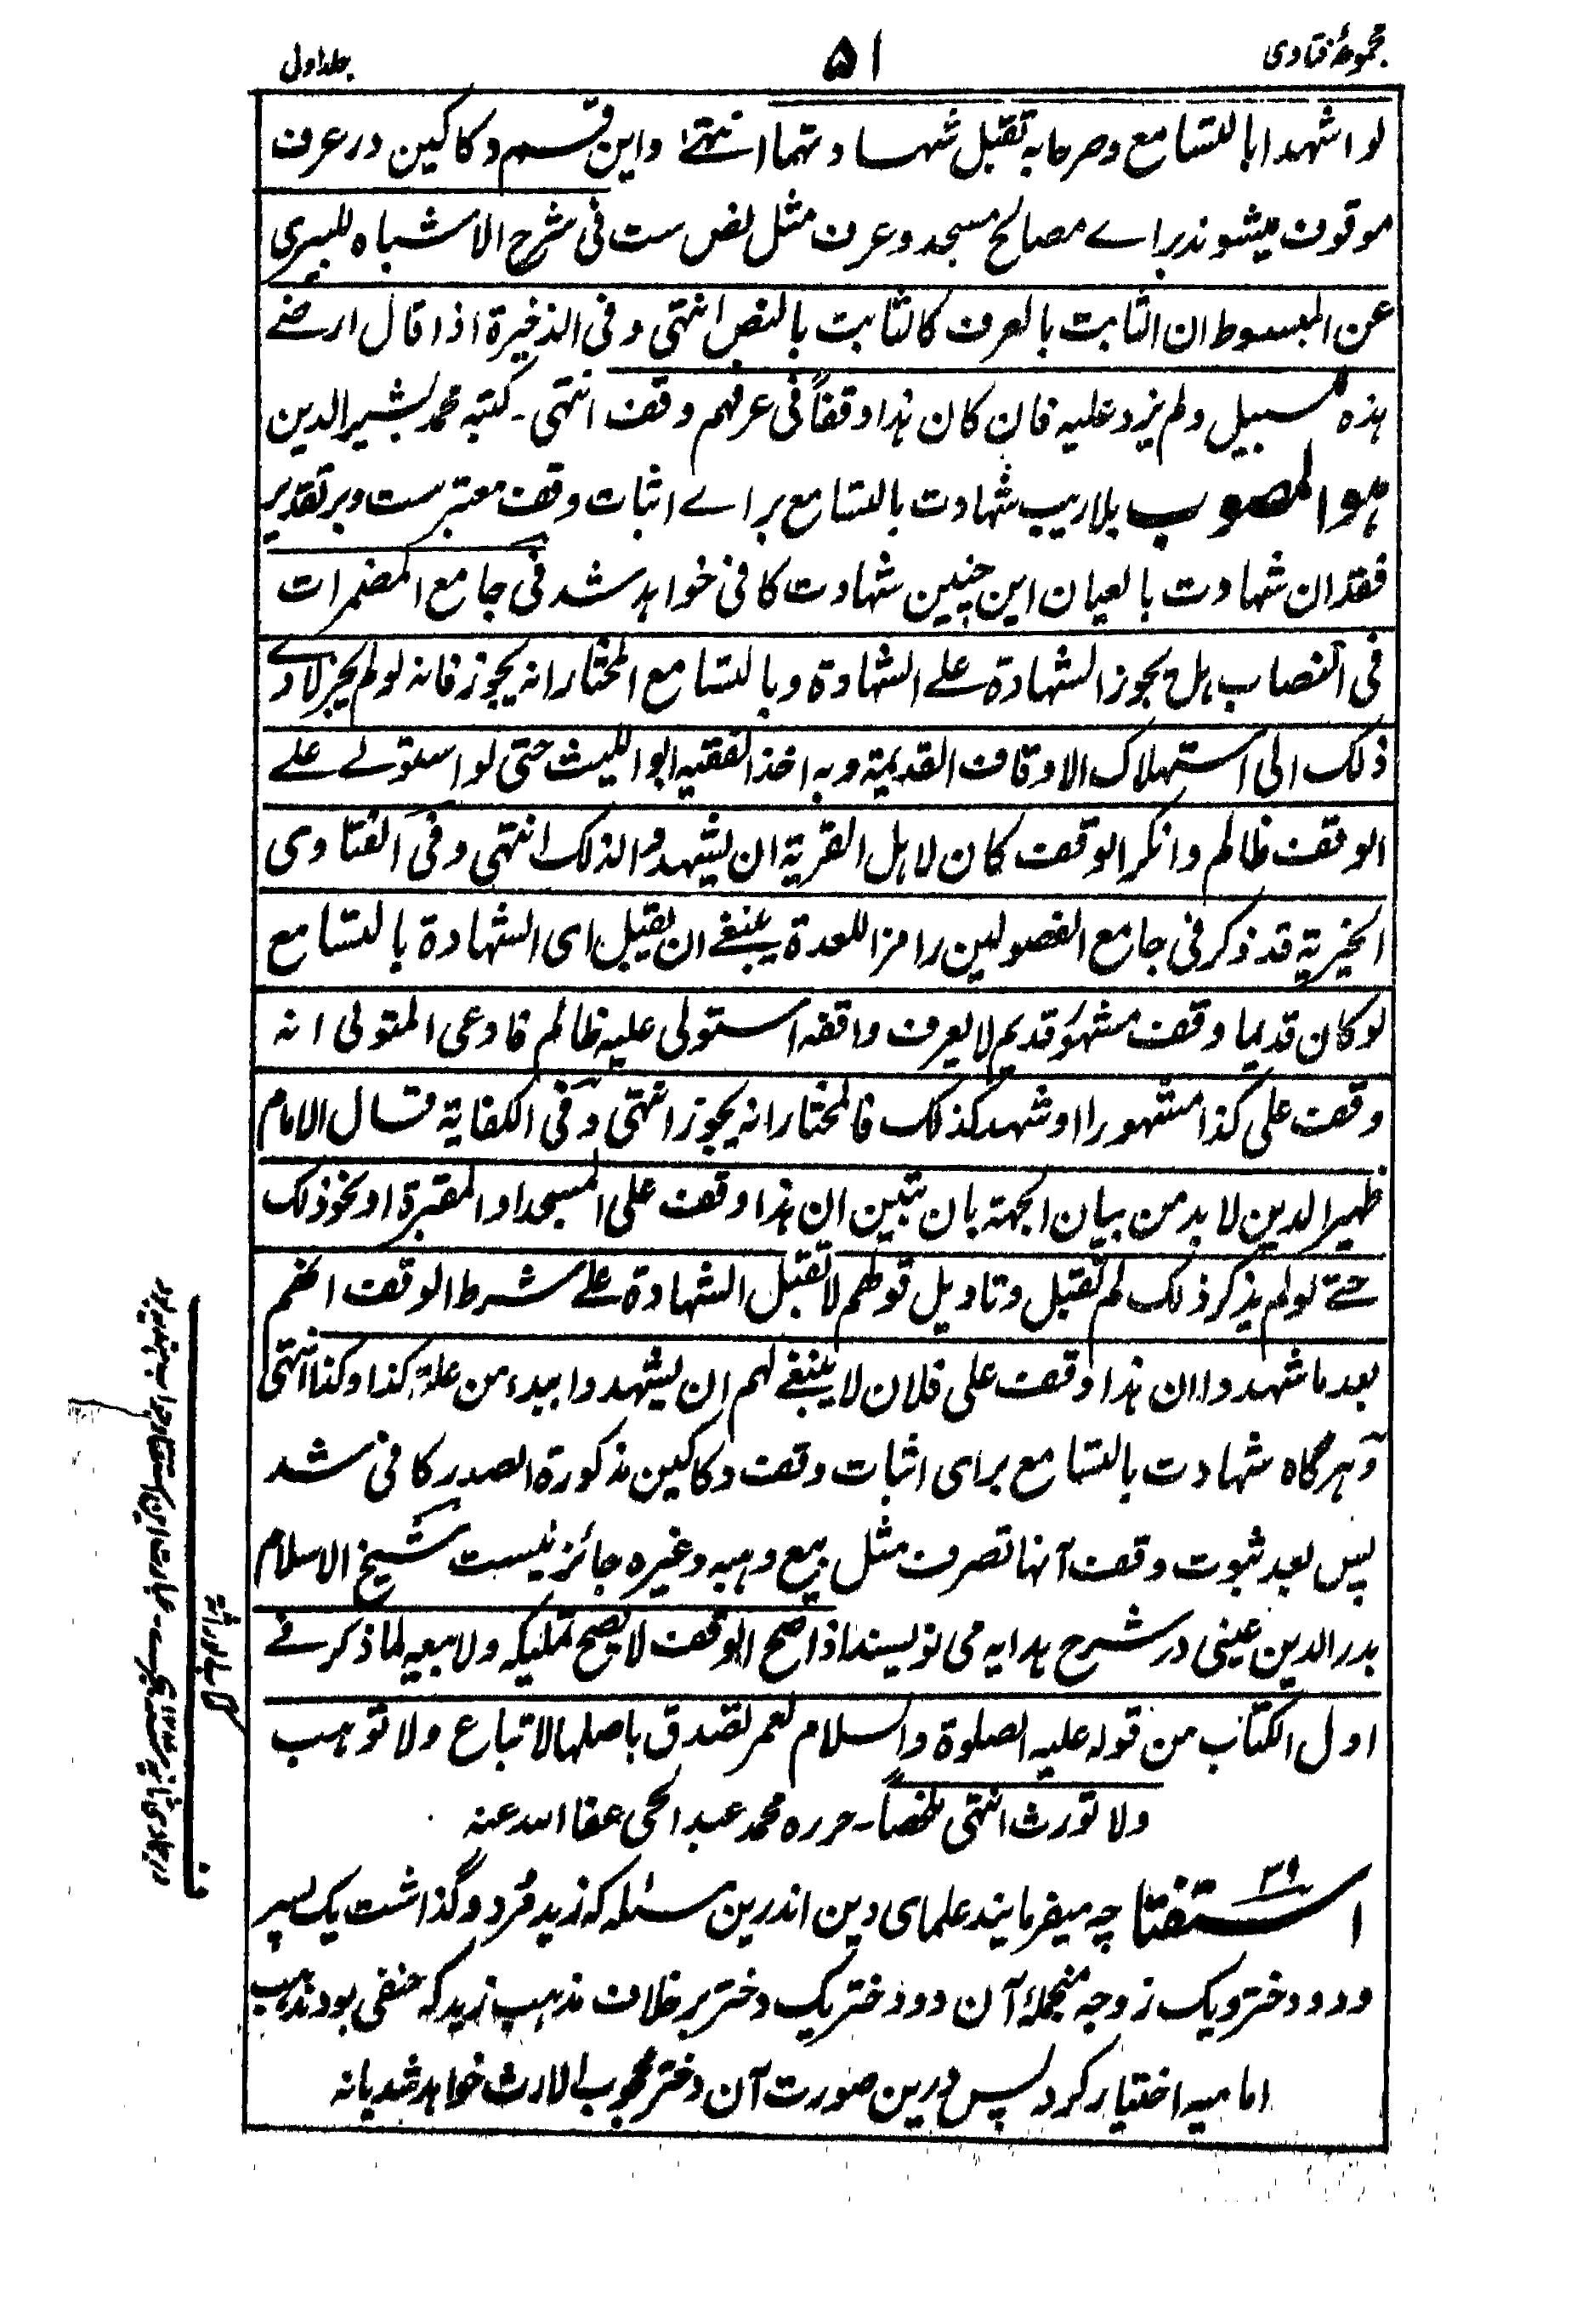 مجموعهٔ فتاوی
۵۱
جلد اول
لو اشهدا بالتسامع وصرحا به تقبل شهادتهما انتهے واین قسم دکاکین در عرف
موقوف میشوند براے مصالح مسجد وعرف مثل نص ست فی شرح الاشباه للبیری
عن المبسوط ان الثابت بالعرف کالثابت بالنص انتهی وفی الذخیرة اذا قال ارضے
هذه سبیل ولم یزد علیه فان کان هذا وقفاً فی عرفهم وقف انتهی۔ کتبه محمد بشیر الدین
هو المصوب بلاریب شهادت بالتسامع براے اثبات وقف معتبرست وبر تقدیر
فقدان شهادت بالعیان این چنین شهادت کافی خواهد شد فی جامع المضمرات
فی النصاب هل یجوز الشهادة علے الشهادة وبالتسامع المختار انه یجوز فانه لو لم یجز لادے
ذلک الی استهلاک الاوقاف القدیمة وبه اخذ الفقیه ابو اللیث حتی لو استولے علے
الوقف ظالم وانکر الوقف کان لاهل القریة ان یشهدوا لذلک انتهی وفی الفتاوی
الخیریة قد ذکر فی جامع الفصولین رامزا للعدة ینبغے ان یقبل ای الشهادة بالتسامع
لو کان قدیما وقف مشهور قدیم لا یعرف واقفه استولی علیه ظالم فادعی المتولی انه
وقف علی کذا مشهورا اوشهد کذلک فالمختار انه یجوز انتهی وفی الکفایة قال الامام
ظهیر الدین لا بد من بیان الجهة بان تبین ان هذا وقف علی المسجد او المقبرة او نحو ذلک
حتے لو لم یذکر ذلک لم تقبل وتاویل قولهم لا تقبل الشهادة علے شرط الوقف انهم
بعد ما شهدوا ان هذا وقف علی فلان لا ینبغے لهم ان یشهدوا یبدء من غلة کذا وکذا انتهی
وهرگاه شهادت بالتسامع برای اثبات وقف دکاکین مذکورة الصدر کافی شد
پس بعد ثبوت وقف آنها تصرف مثل بیع وهبه وغیره جائز نیست شیخ الاسلام
بدر الدین عینی در شرح هدایه می نویسد اذا صح الوقف لا یصح تملیکه ولا بیعه لما ذکر فے
اول الکتاب من قوله علیه الصلوة والسلام لعمر تصدق باصلها لا تباع ولا توهب
ولا تورث انتهی ملخصاً۔ حرره محمد عبد الحی عفا الله عنه
استفتا ۳۹ چه میفرمایند علمای دین اندرین مسئله که زید مُرد وگذاشت یک پسر
ودو دختر ویک زوجه منجملهٔ آن دو دختر یک دختر بر خلاف مذهب زید که حنفی بود مذهب
امامیه اختیار کرد پس درین صورت آن دختر محجوب الارث خواهد شد یا نه